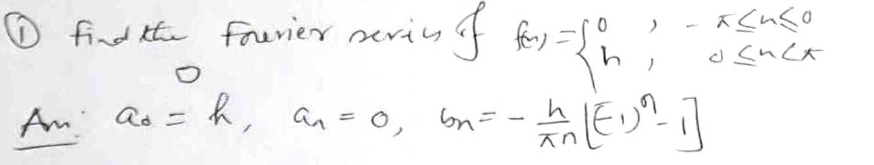 ① find the Fourier series of f(n) = { 0 , - π ≤ n ≤ 0
h , 0 ≤ n < π
Ans: a₀ = h, aₙ = 0, bₙ = - h/πn [(-1)ⁿ - 1]